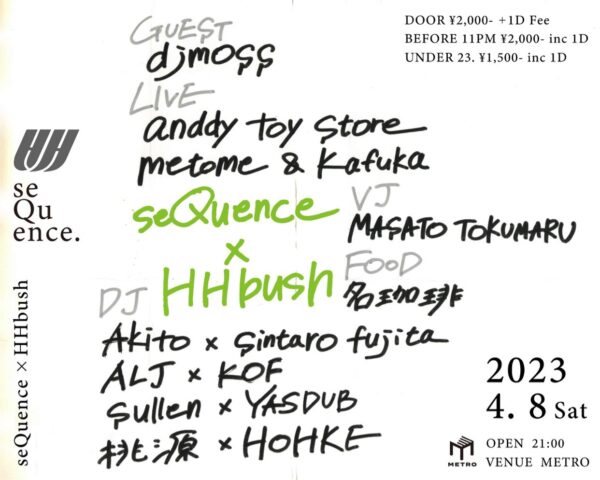 GUEST
djmoss
LIVE
anddy toy store
metome & Kafuka
seQuence
×
HHbush
VJ
MASATO TOKUMARU
FOOD
名珈琲
DJ
Akito × Sintaro fujita
ALJ × KOF
Sullen × YASDUB
桃源 × HOHKE
DOOR ¥2,000- +1D Fee
BEFORE 11PM ¥2,000- inc 1D
UNDER 23. ¥1,500- inc 1D
HH
se
Qu
ence.
seQuence × HHbush
2023
4. 8 Sat
METRO
OPEN 21:00
VENUE METRO